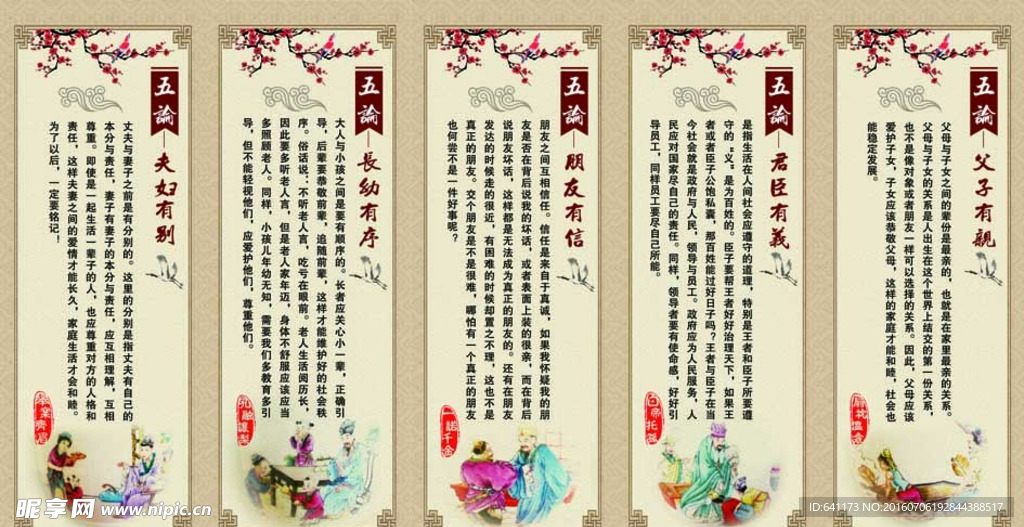 五論—父子有親
父母与子女之间的辈份是最亲的，也就是在家里最亲的关系。
父母与子女的关系是人出生在这个世界上结交的第一份关系，
也不是像对象或者朋友一样可以选择的关系。因此，父母应该
爱护子女，子女应该恭敬父母，这样的家庭才能和睦，社会也
能稳定发展。
扇枕温衾
五論—君臣有義
是指生活在人间社会应遵守的道理，特别是王者和臣子所要遵
守的“义”是为百姓的。臣子要帮王者好好治理天下，如果王
者或者臣子公饱私囊，那百姓能过好日子吗？王者与臣子在当
今社会就是政府与人民，领导与员工。政府应为人民服务，人
民应对国家尽自己的责任。同样，领导者要有使命感，好好引
导员工，同样员工要尽自己所能。
白帝托孤
五論—朋友有信
朋友之间互相信任。信任是来自于真诚，如果我怀疑我的朋
友是否在背后说我的坏话，或者表面上装的很亲，而在背后
说朋友坏话，这样都是无法成为真正的朋友的。还有在朋友
发达的时候走的很近，有困难的时候却置之不理，这也不是
真正的朋友。交个朋友是不是很难，哪怕有一个真正的朋友
也何尝不是一件好事呢？
一諾千金
五論—長幼有序
大人与小孩之间是要有顺序的。长者应关心小一辈，正确引
导，后辈要恭敬前辈，追随前辈，这样才能维护好的社会秩
序。俗话说：不听老人言，吃亏在眼前。老人生活阅历长，
因此要多听老人言，但是老人家年迈，身体不舒服应该应当
多照顾老人。同样，小孩儿年幼无知，需要我们多教育多引
导，但不能轻视他们，应爱护他们，尊重他们。
孔融讓梨
五論—夫妇有别
丈夫与妻子之前是有分别的。这里的分别是指丈夫有自己的
本分与责任，妻子有妻子的本分与责任，应互相理解，互相
尊重。即使是一起生活一辈子的人，也应尊重对方的人格和
责任，这样夫妻之间的爱情才能长久，家庭生活才会和睦。
为了以后，一定要铭记！
舉案齊眉
昵享网 www.nipic.cn
ID:641173 NO:20160706192844388517